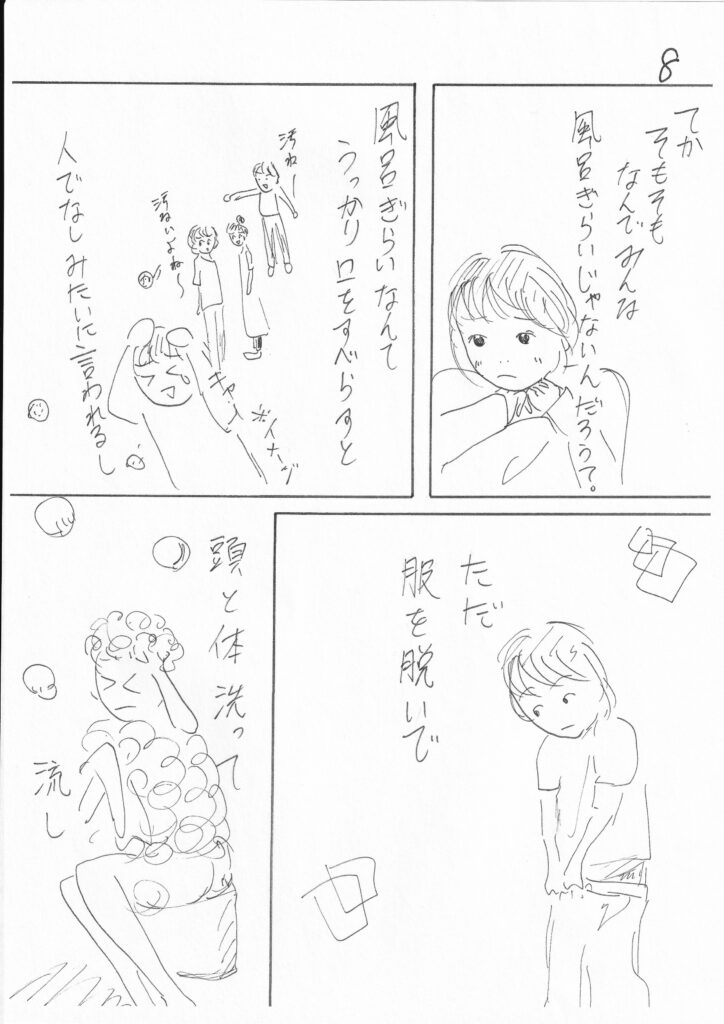 8
てか
そもそも
なんでみんな
風呂ぎらいじゃないんだろうて。
風呂ぎらいなんて
うっかり口をすべらすと
汚ねー
汚ないよね〜
キャー
※イメージ
人でなしみたいに言われるし
ただ
服を脱いで
頭と体洗って
流し